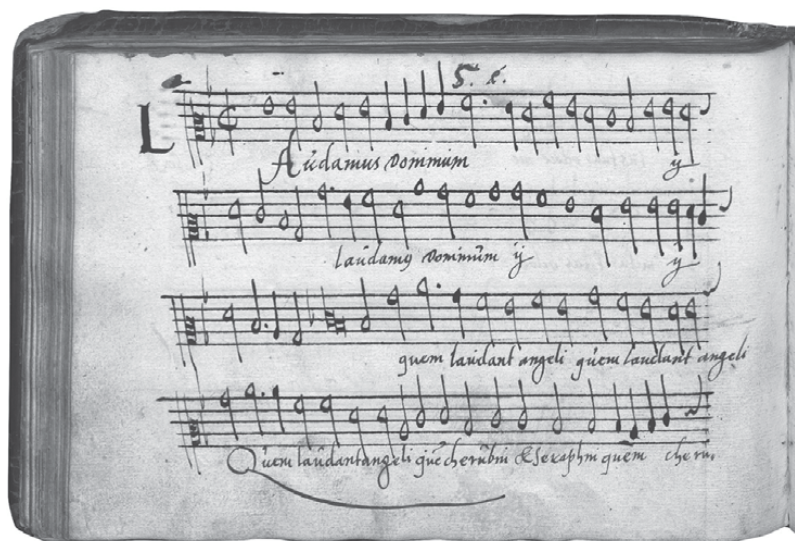 5. x.
L
Audamus Dominum ij
laudamus Dominum ij ij
quem laudant angeli quem laudant angeli
Quem laudant angeli que cherubin & seraphin quem cheru.